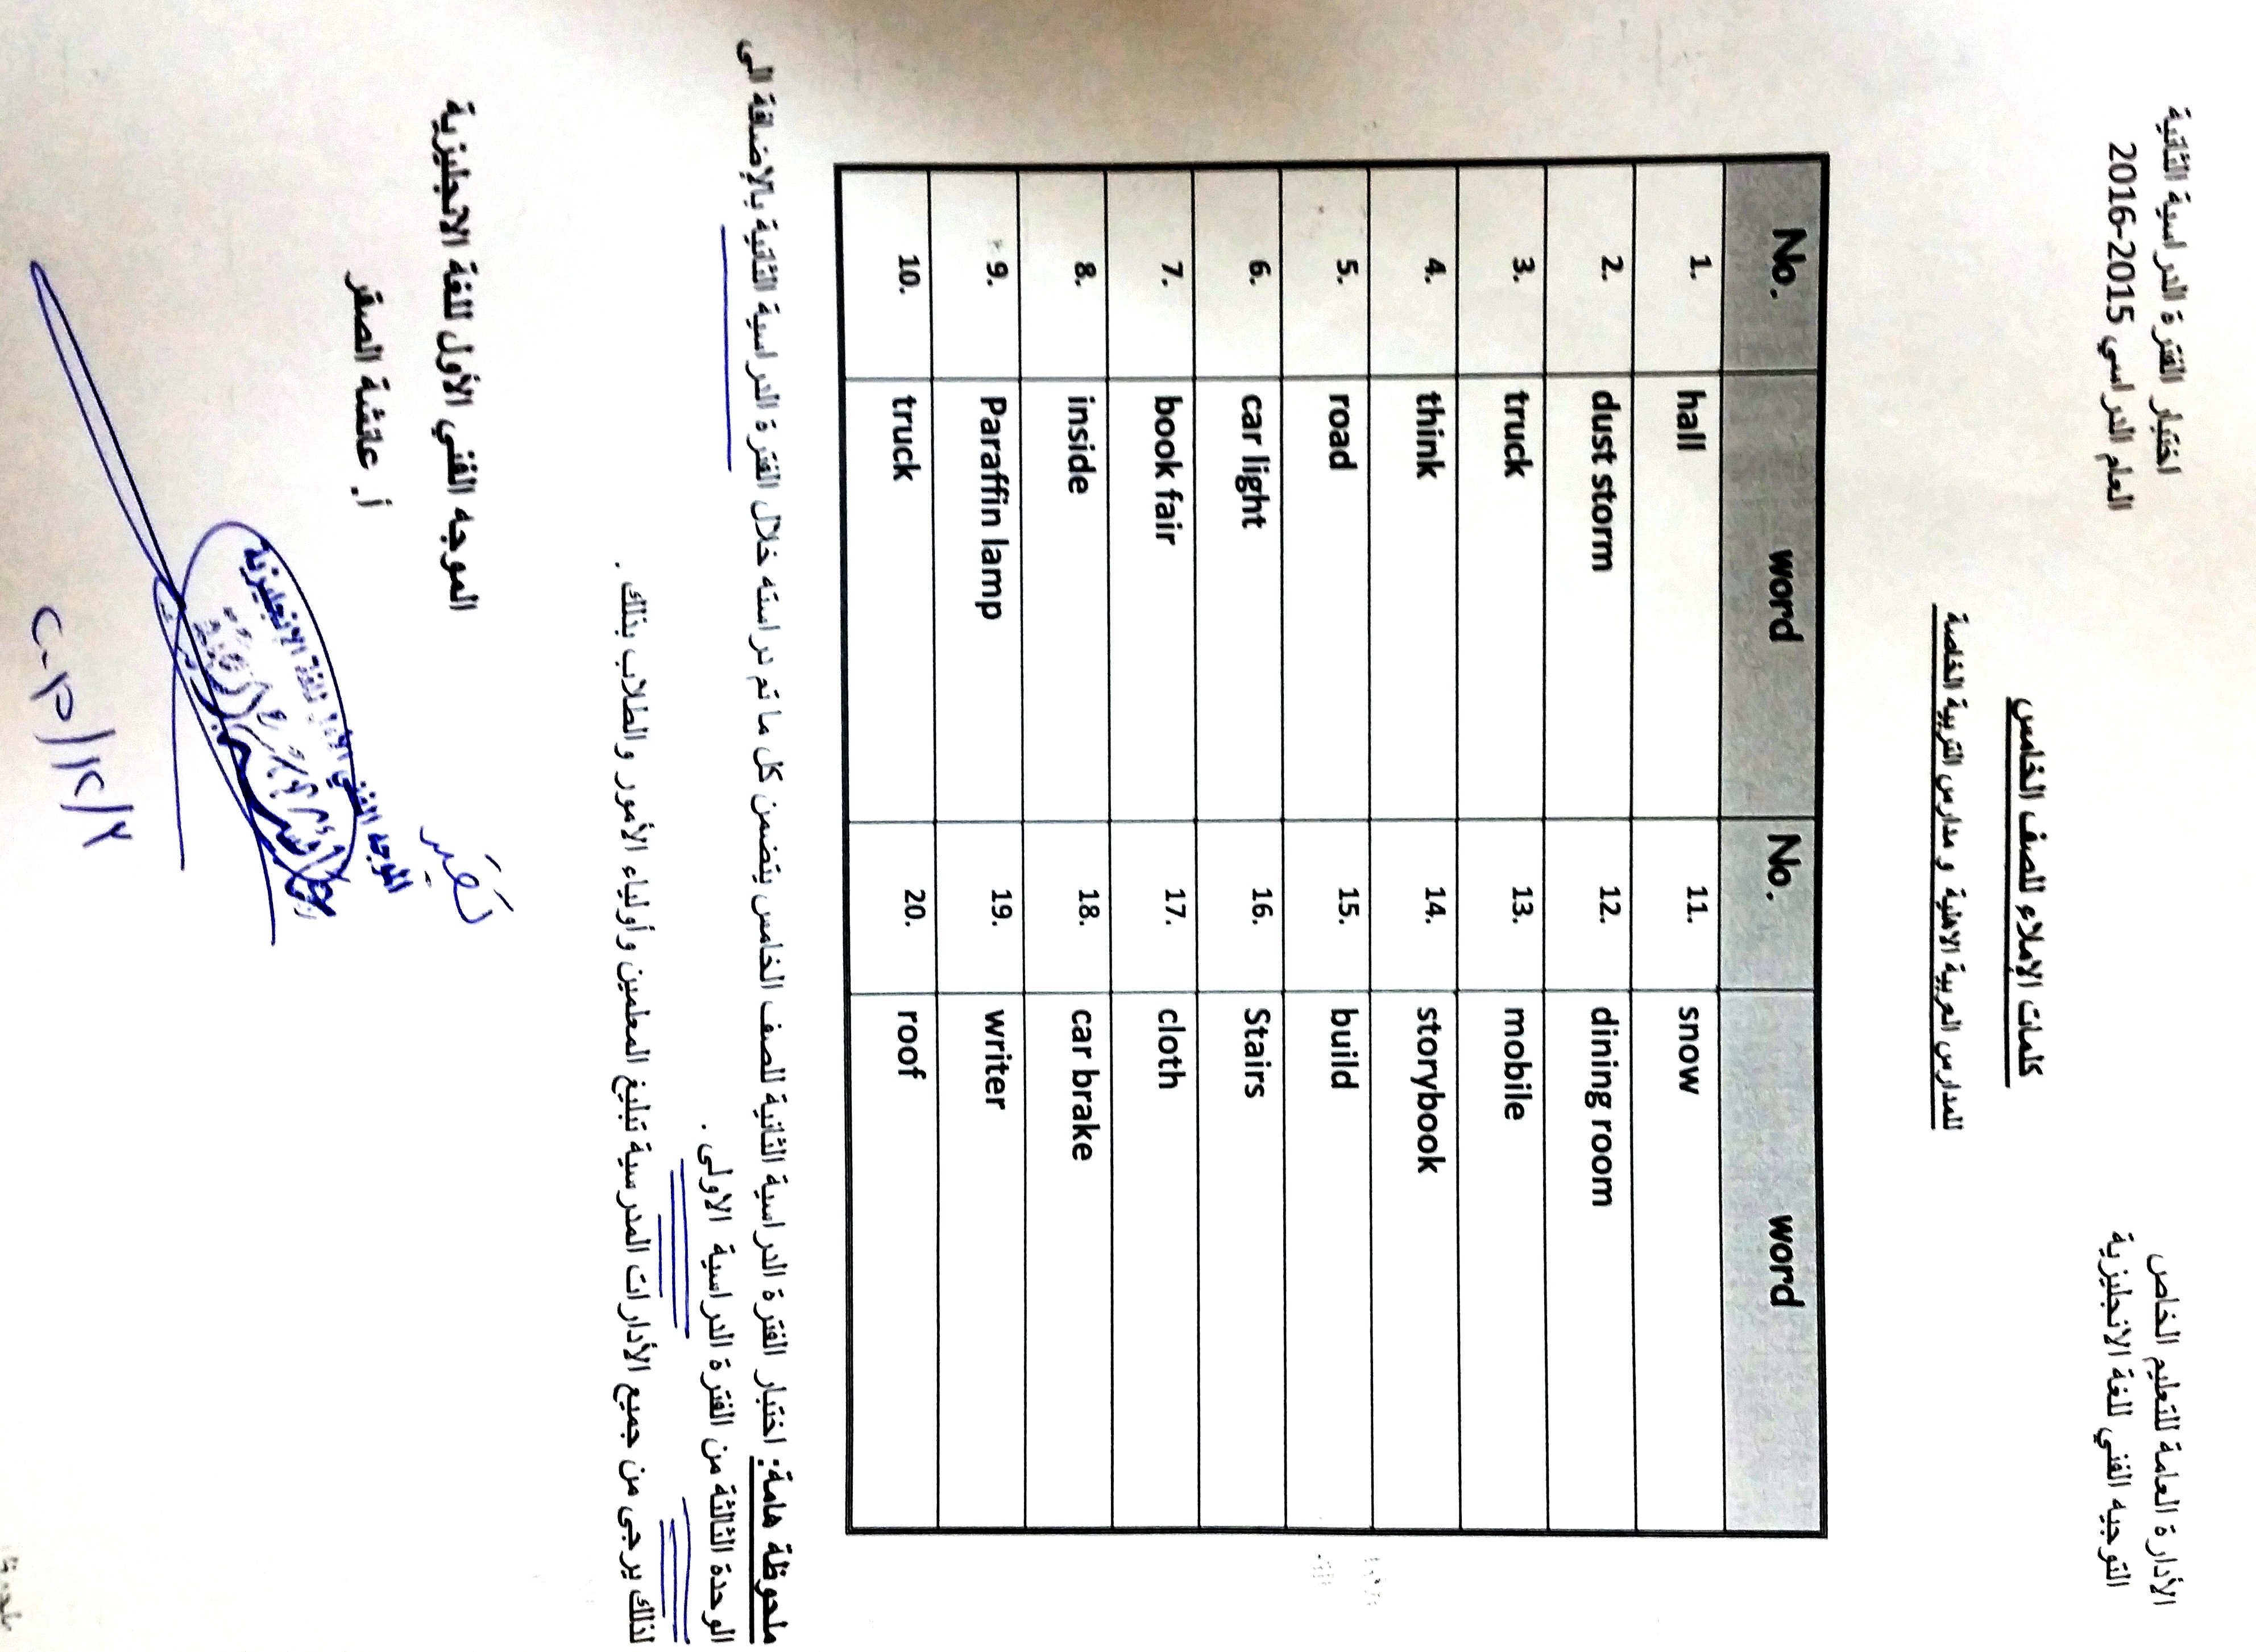 الأدارة العامة للتعليم الخاص
التوجيه الفني للغة الانجليزية
اختبار الفترة الدراسية الثانية
العام الدراسي 2015-2016
كلمات الإملاء للصف الخامس
للمدارس العربية الاهلية و مدارس التربية الخاصة
No. word No. word
1. hall 11. snow
2. dust storm 12. dining room
3. truck 13. mobile
4. think 14. storybook
5. road 15. build
6. car light 16. Stairs
7. book fair 17. cloth
8. inside 18. car brake
9. Paraffin lamp 19. writer
10. truck 20. roof
ملحوظة هامة: اختبار الفترة الدراسية الثانية للصف الخامس يتضمن كل ما تم دراسته خلال الفترة الدراسية الثانية بالإضافة الى
الوحدة الثالثة من الفترة الدراسية الاولى .
لذلك يرجى من جميع الأدارات المدرسية تبليغ المعلمين و أولياء الأمور و الطلاب بذلك .
الموجه الفني الأول للغة الانجليزية
أ. عائشة الصقر